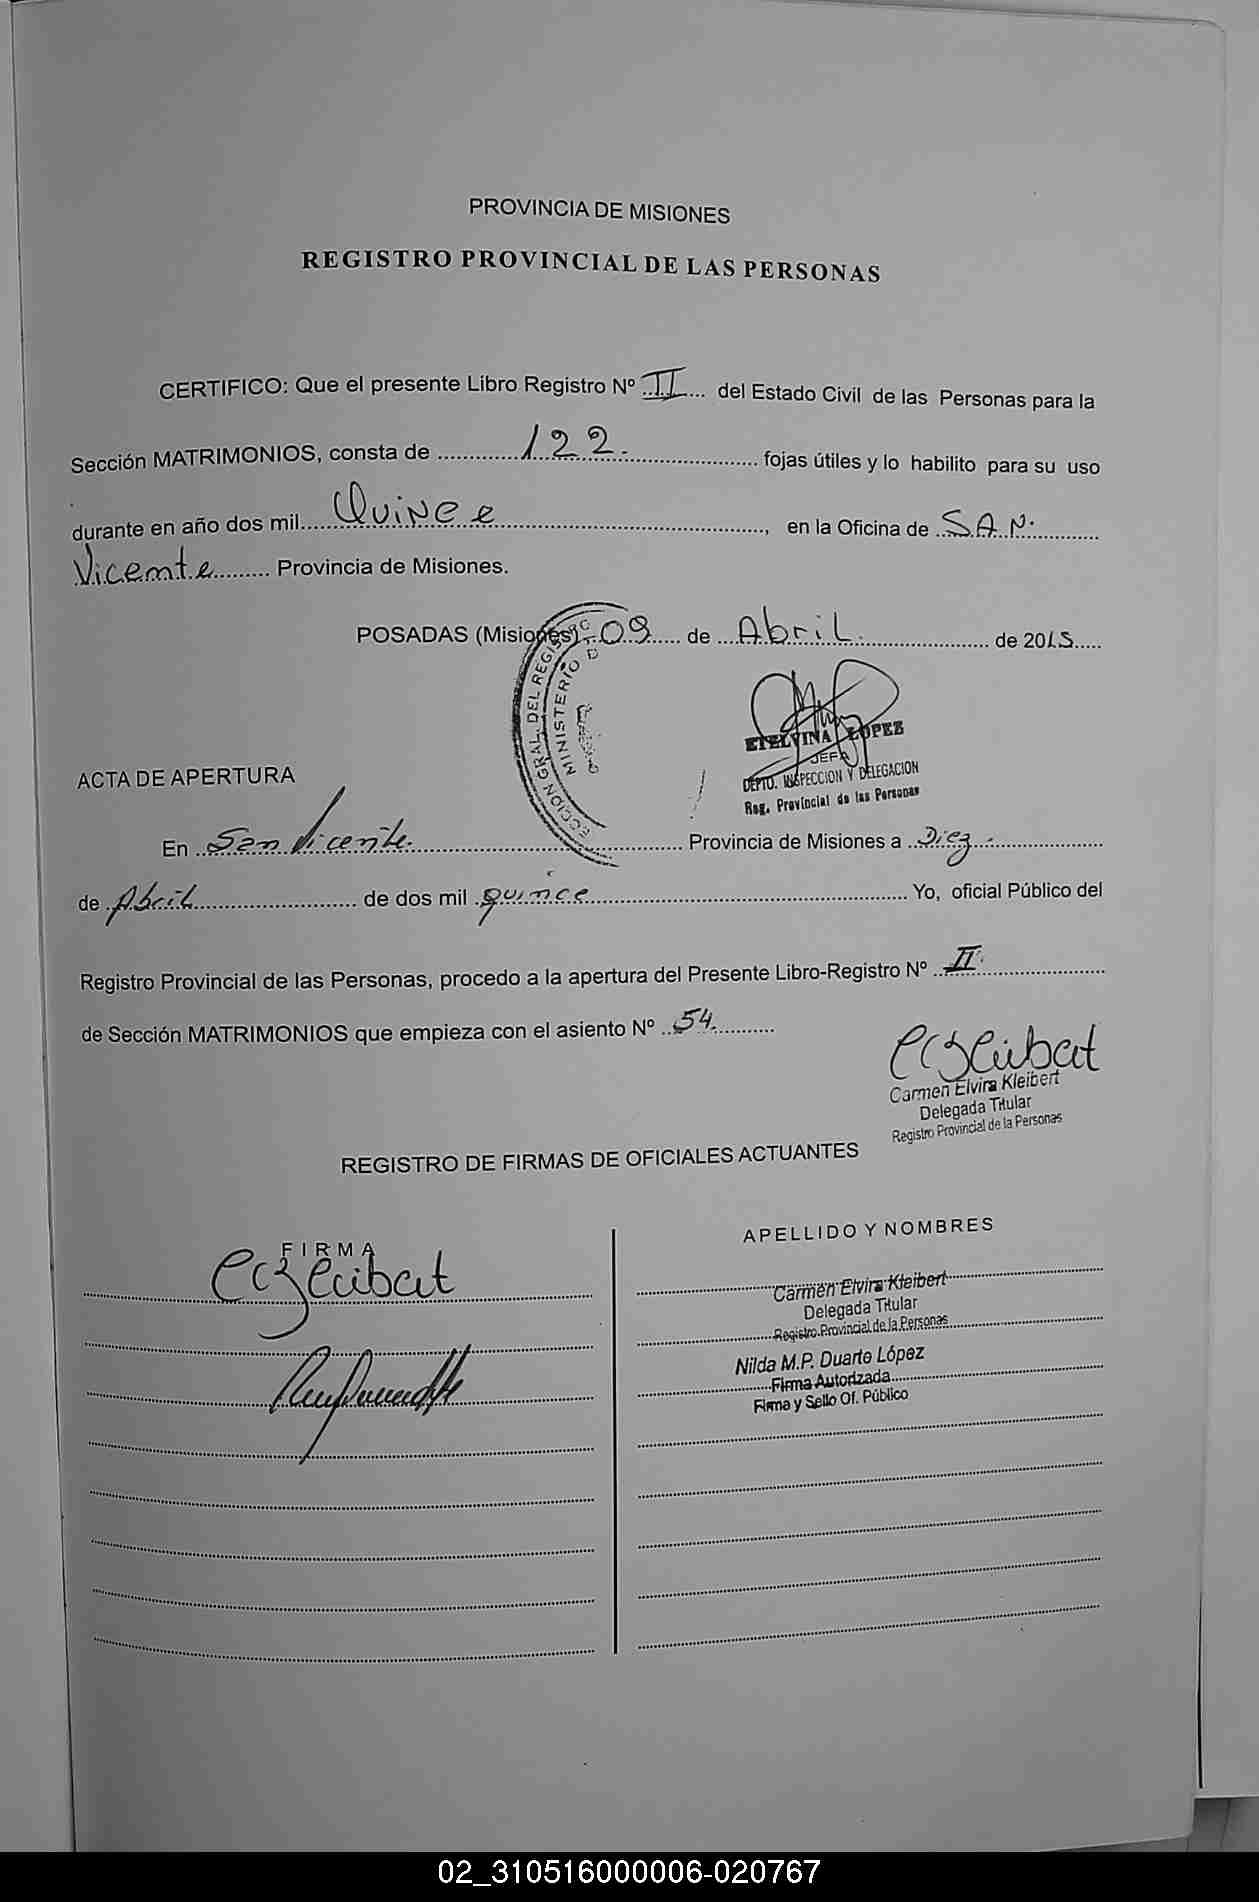 PROVINCIA DE MISIONES
REGISTRO PROVINCIAL DE LAS PERSONAS
CERTIFICO: Que el presente Libro Registro Nº II del Estado Civil de las Personas para la
Sección MATRIMONIOS, consta de 122. fojas útiles y lo habilito para su uso
durante en año dos mil Quince, en la Oficina de SAN.
Vicente Provincia de Misiones.
POSADAS (Misiones) 09 de Abril de 2015
ECCION GRAL. DEL REGIS
MINISTERIO D
ETELVINA LOPEZ
JEFA
DEPTO. INSPECCION Y DELEGACION
Reg. Provincial de las Personas
ACTA DE APERTURA
En San Vicente. Provincia de Misiones a Diez
de Abril de dos mil quince Yo, oficial Público del
Registro Provincial de las Personas, procedo a la apertura del Presente Libro-Registro Nº II
de Sección MATRIMONIOS que empieza con el asiento Nº 54.
Carmen Elvira Kleibert
Delegada Titular
Registro Provincial de la Personas
REGISTRO DE FIRMAS DE OFICIALES ACTUANTES
FIRMA
APELLIDO Y NOMBRES
Carmen Elvira Kleibert
Delegada Titular
Registro Provincial de la Personas
Nilda M.P. Duarte López
Firma Autorizada
Firma y Sello Of. Público
02_310516000006-020767